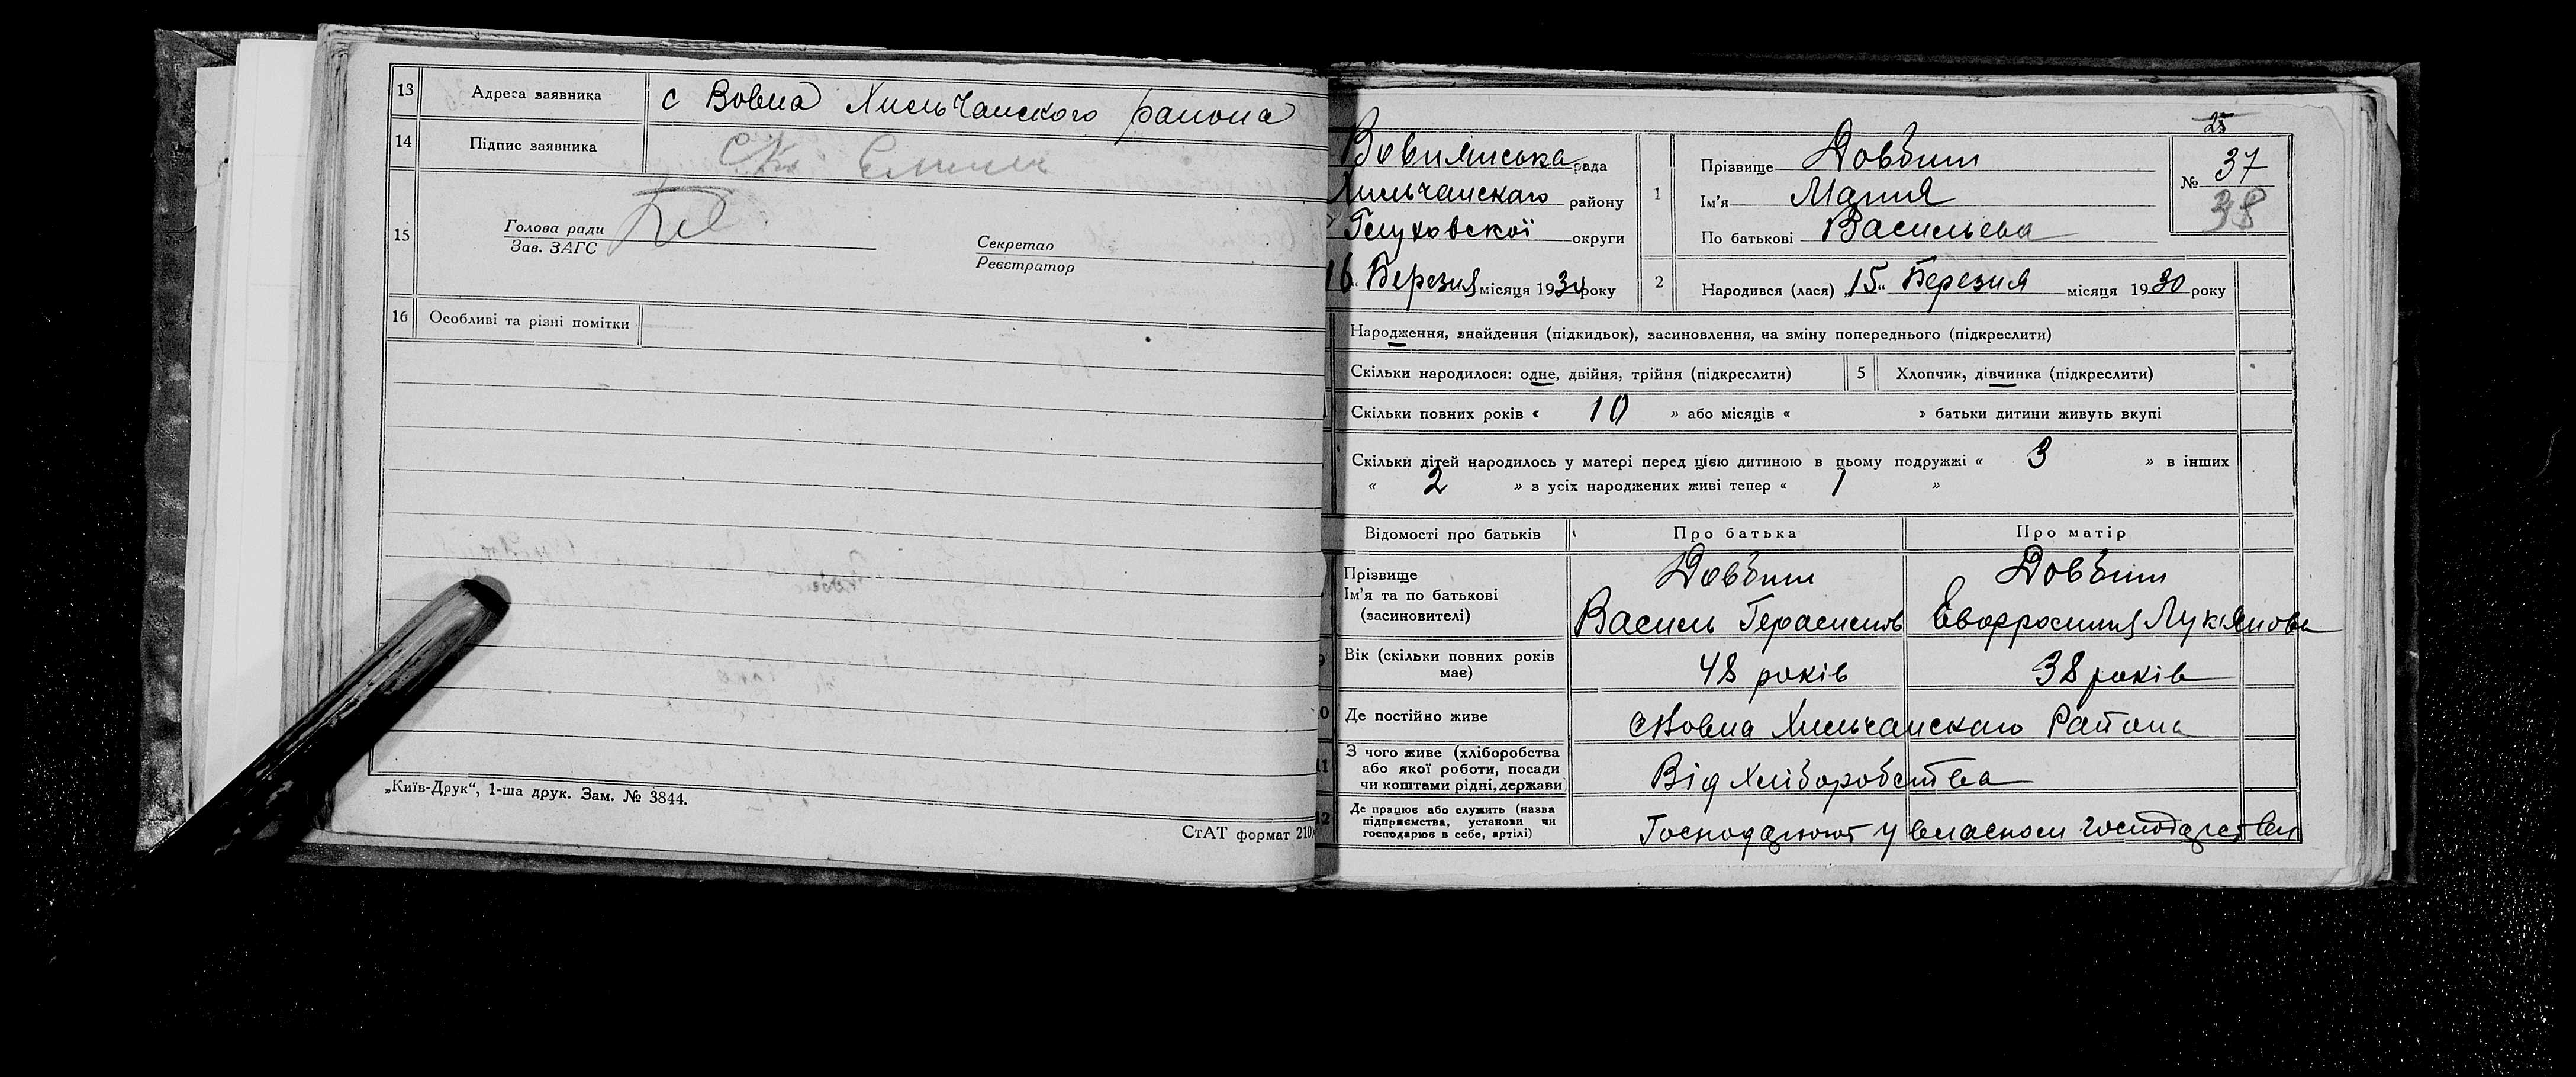 13 Адреса заявника с Вовна Хильчанского района
14 Підпис заявника
15 Голова ради
Зав. ЗАГС
Секретар
Реєстратор
16 Особливі та різні помітки
„Київ-Друк“, 1-ша друк. Зам. № 3844.
СтАТ формат 210
25
Вовнянська рада
Хильчанскаго району
Глуховскої округи
16 Березня місяця 1930 року
1 Прізвище Довбиш
Ім'я Мария
По батькові Васильевна
№ 37
38
2 Народився (лася) „15“ Березня місяця 1930 року
Народження, знайдення (підкидьок), засиновлення, на зміну попереднього (підкреслити)
Скільки народилося: одне, двійня, трійня (підкреслити) 5 Хлопчик, дівчинка (підкреслити)
Скільки повних років « 10 » або місяців « » батьки дитини живуть вкупі
Скільки дітей народилось у матері перед цією дитиною в цьому подружжі « 3 » в інших
« 2 » з усіх народжених живі тепер « 1 »
Відомості про батьків Про батька Про матір
Прізвище Довбиш Довбиш
Ім'я та по батькові
(засиновителі) Василь Герасимов Евфросиния Лукянова
9 Вік (скільки повних років
має) 48 років 38 років
10 Де постійно живе с Вовна Хильчанскаго Района
11 З чого живе (хліборобства
або якої роботи, посади
чи коштами рідні, держави) Від хліборобства
12 Де працює або служить (назва
підприємства, установи чи
господарює в себе, артілі) Господарюют у власном господарстві